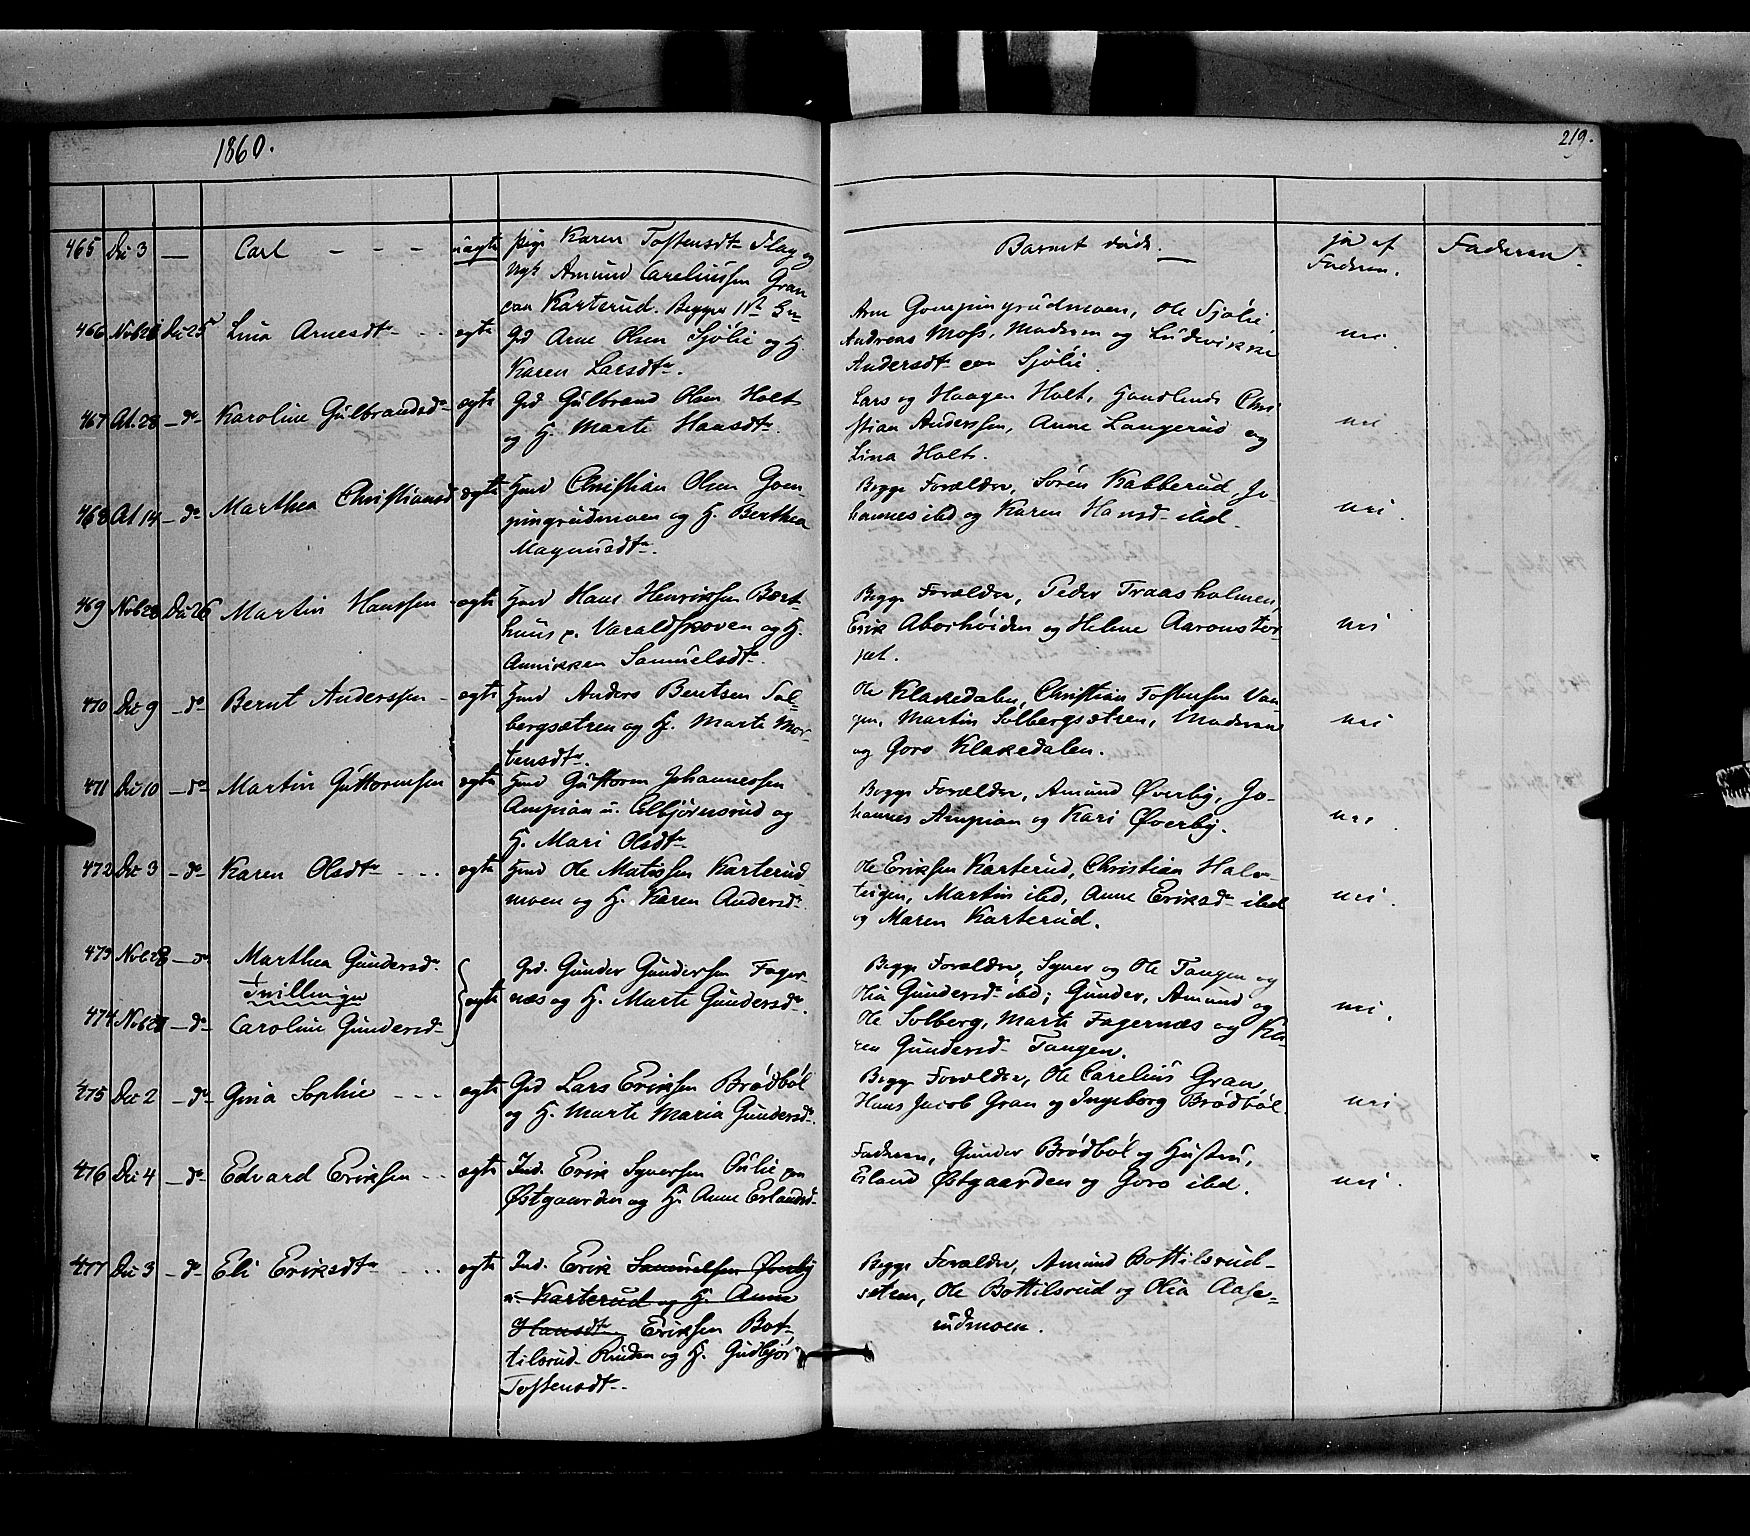 1860.
219.
465 Dec 3 — Carl - - - uægte Pige Karen Tostensdtr Flag og
Ungk Amund Careliussen Gran
paa Karterud. Begges 1ste
Barnet døde.
ja af
Faderen.
Faderen.
466 Novb 26 Dec 25 Lina Arnesdtr - - ægte
Grd Arne Olsen Sjölie og H.
Karen Larsdtr.
Arne Gompingrudmoen, Ole Sjölie,
Andreas Moss, Moderen og Ludvikke
Andersdtr paa Sjölie.
nei.
467 Oct. 28 — do Karoline Gulbrandsdr ægte Grd Gulbrand Olsen Holt
og H. Marte Hansdtr.
Lars og Haagen Holt, Handlende Chri
stian Anderssen, Anne Langerud og
Lina Holt.
nei
468 Oct 14 — do Marthea Christiansd ægte Hmd Christian Olsen Gom-
pingrudmoen og H. Berthea
Magnusdtr.
Begge Forældre, Sören Kabberud Jo-
hannes ibd og Karen Hansd- ibd.
nei.
469 Novb 28 Dec 26 Martin Hanssen - ægte Hmd Hans Henriksen Bært-
huus p. Varaldskoven og H.
Annikken Samuelsdtr.
Begge Forældre, Peder Traasholmen,
Erik Aborhöiden og Helene Aaronstor-
pet.
nei
470 Dec 9 — do Bernt Anderssen - ægte Hmd Anders Berntsen Sol-
bergsætren og H. Marte Mor-
tensdtr.
Ole Klakedalen, Christian Tostensen Van-
gen, Martin Solbergsætren, Moderen
og Goro Klakedalen.
nei
471 Dec 10 — do Martin Guttormsen ægte Hmd Guttorm Johannessen
Ampian u. Abjörnsrud og
H. Mari Olsdtr
Begge Forældre, Amund Øverby, Jo-
hannes Ampian og Kari Øverby.
nei.
472 Dec 3 — do Karen Olsdtr - - - ægte Hmd Ole Matissen Karterud
moen og H. Karen Andersd-
Ole Eriksen Karterud, Christian Halv-
teigen, Martin ibd, Anne Eriksd- ibd
og Maren Karterud.
nei.
473 Novb 28 — do Marthea Gundersd-
Tvillinger
474 Novb 28 — do Caroline Gundersd-
ægte
Grd. Gunder Gundersen Fager-
næs og H. Marte Gundersd-.
Begge Forældre, Syver og Ole Tangen og
Olia Gundersd- ibd; Gunder, Amund og
Ole Solberg, Marte Fagernæs og Ka-
ren Gundersd- Tangen.
nei.
475 Dec 2 — do Gina Sophie - - - ægte Grd Lars Eriksen Brödböl
og H. Marte Maria Gundersd-.
Begge Forældre, Ole Carelius Gran,
Hans Jacob Gran og Ingeborg Brödböl
nei
476 Dec 4 — do Edvard Eriksen - - ægte Ind. Erik Syversen Julie paa
Østgaarden og H. Anne Erlandsd-
Faderen, Gunder Brödböl og Hustru,
Erland Østgaarden og Goro ibd.
nei.
477 Dec 3 — do Eli Eriksdtr - - - ægte Ind. Erik Samuelsen Øverby
u. Karterud og H. Anne
Hansdtr Eriksen Bot-
tilsrud Ruden og H. Gudbjör
Tostensdtr.
Begge Forældre, Amund Bottilsrud-
sætren, Ole Bottilsrud og Olia Aase-
rudmoen.